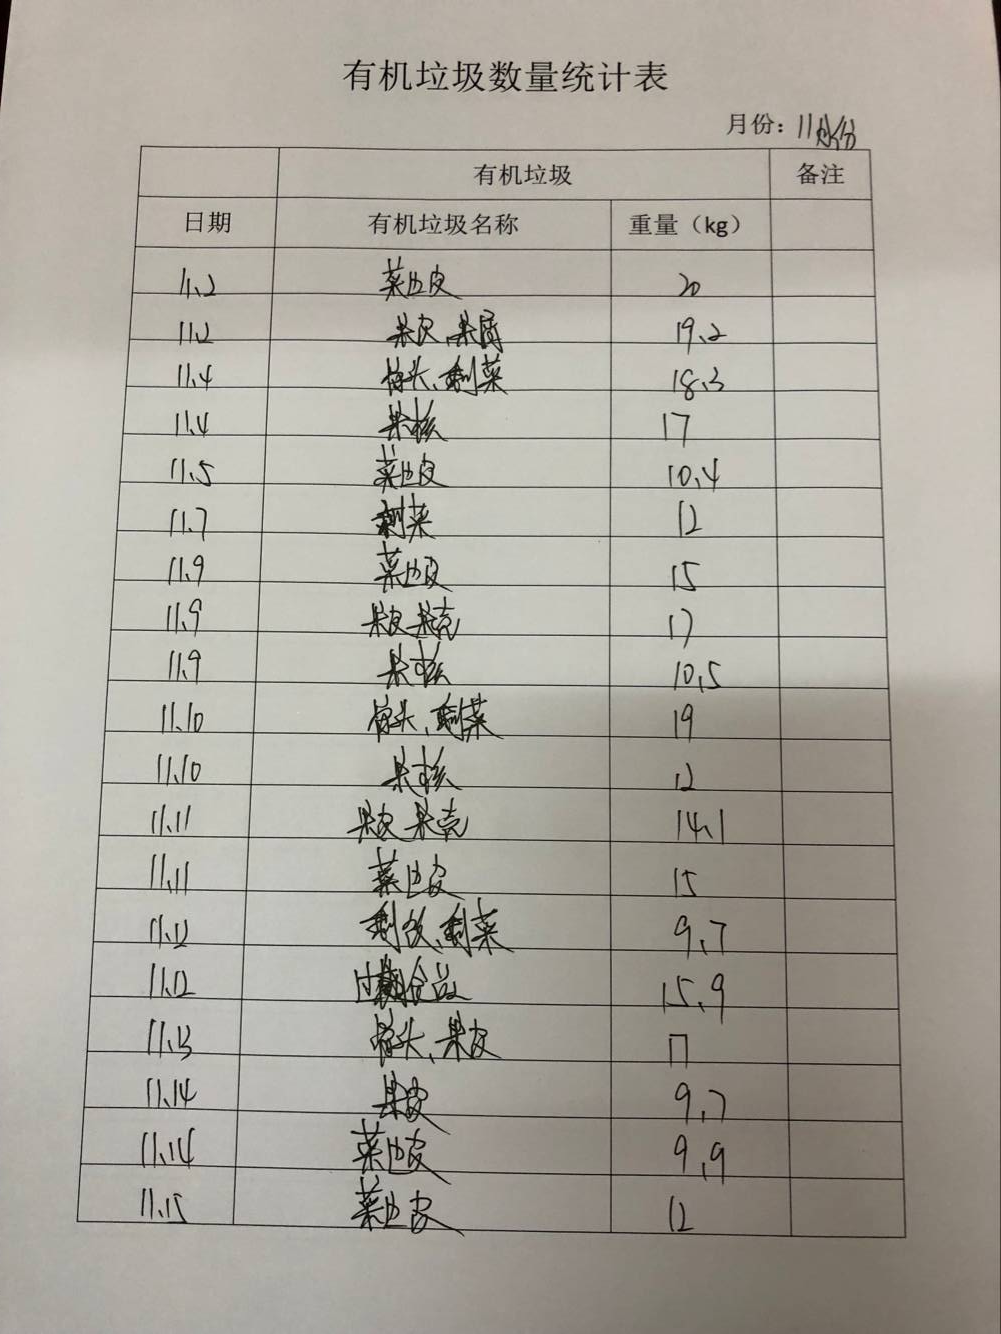 有机垃圾数量统计表
月份：11月份
有机垃圾 备注
日期 有机垃圾名称 重量（kg）
11.2 菜皮 20
11.2 果皮、果屑 19.2
11.4 骨头、剩菜 18.3
11.4 果核 17
11.5 菜皮 10.4
11.7 剩菜 12
11.9 菜皮 15
11.9 果皮 果壳 17
11.9 果核 10.5
11.10 骨头、剩菜 19
11.10 果核 12
11.11 果皮 果壳 14.1
11.11 菜皮 15
11.12 剩饭、剩菜 9.7
11.12 过期食品 15.9
11.13 骨头、果皮 17
11.14 果皮 9.7
11.14 菜皮 9.9
11.15 菜皮 12